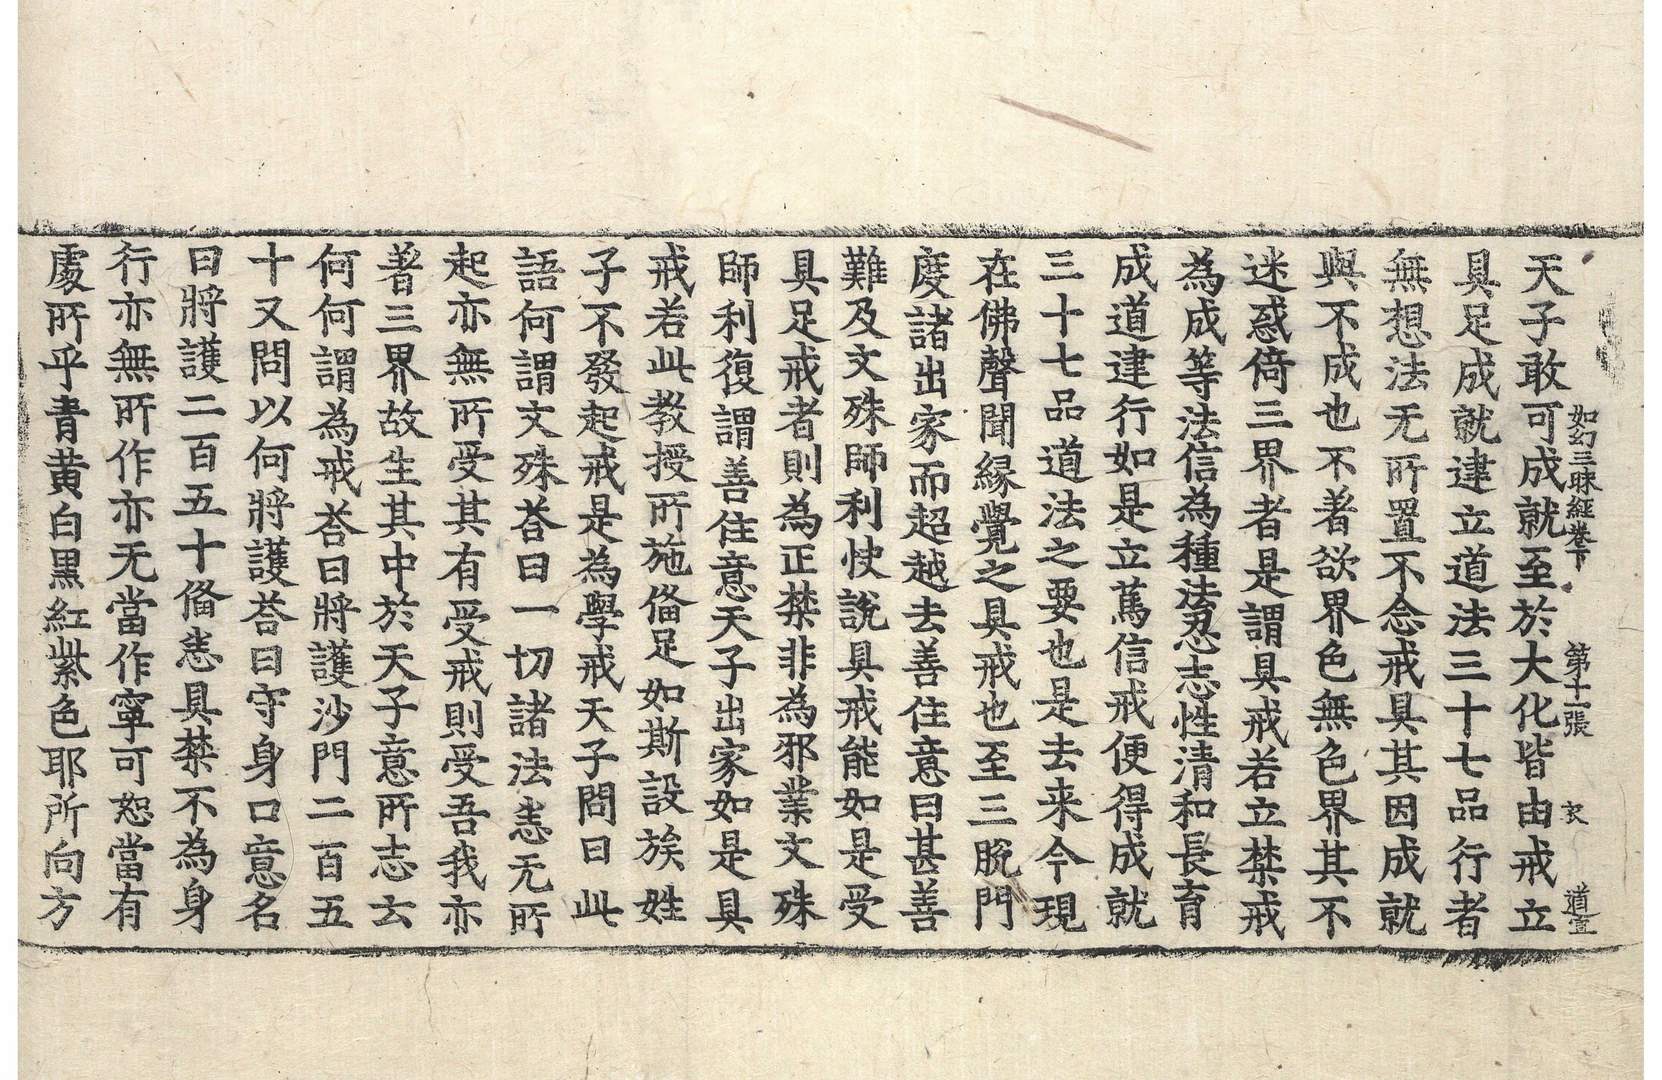 如幻三昧經卷下　第十一張　衣　道言
天子敢可成就至於大化皆由戒立
具足成就建立道法三十七品行者
無想法无所置不念戒具其因成就
與不成也不著欲界色無色界其不
迷惑倚三界者是謂具戒若立禁戒
為成等法信為種法忍志性清和長育
成道建行如是立篤信戒便得成就
三十七品道法之要也是去来今現
在佛聲聞縁覺之具戒也至三脫門
度諸出家而超越去善住意曰甚善
難及文殊師利快說具戒能如是受
具足戒者則為正禁非為邪業文殊
師利復謂善住意天子出家如是具
戒若此教授所施俻足如斯設族姓
子不發起戒是為學戒天子問曰此
語何謂文殊荅曰一切諸法恚无所
起亦無所受其有受戒則受吾我亦
著三界故生其中於天子意所志云
何何謂為戒荅曰將護沙門二百五
十又問以何將護荅曰守身口意名
曰將護二百五十俻恚具禁不為身
行亦無所作亦无當作寧可恕當有
處所乎青黃白黑紅紫色耶所向方